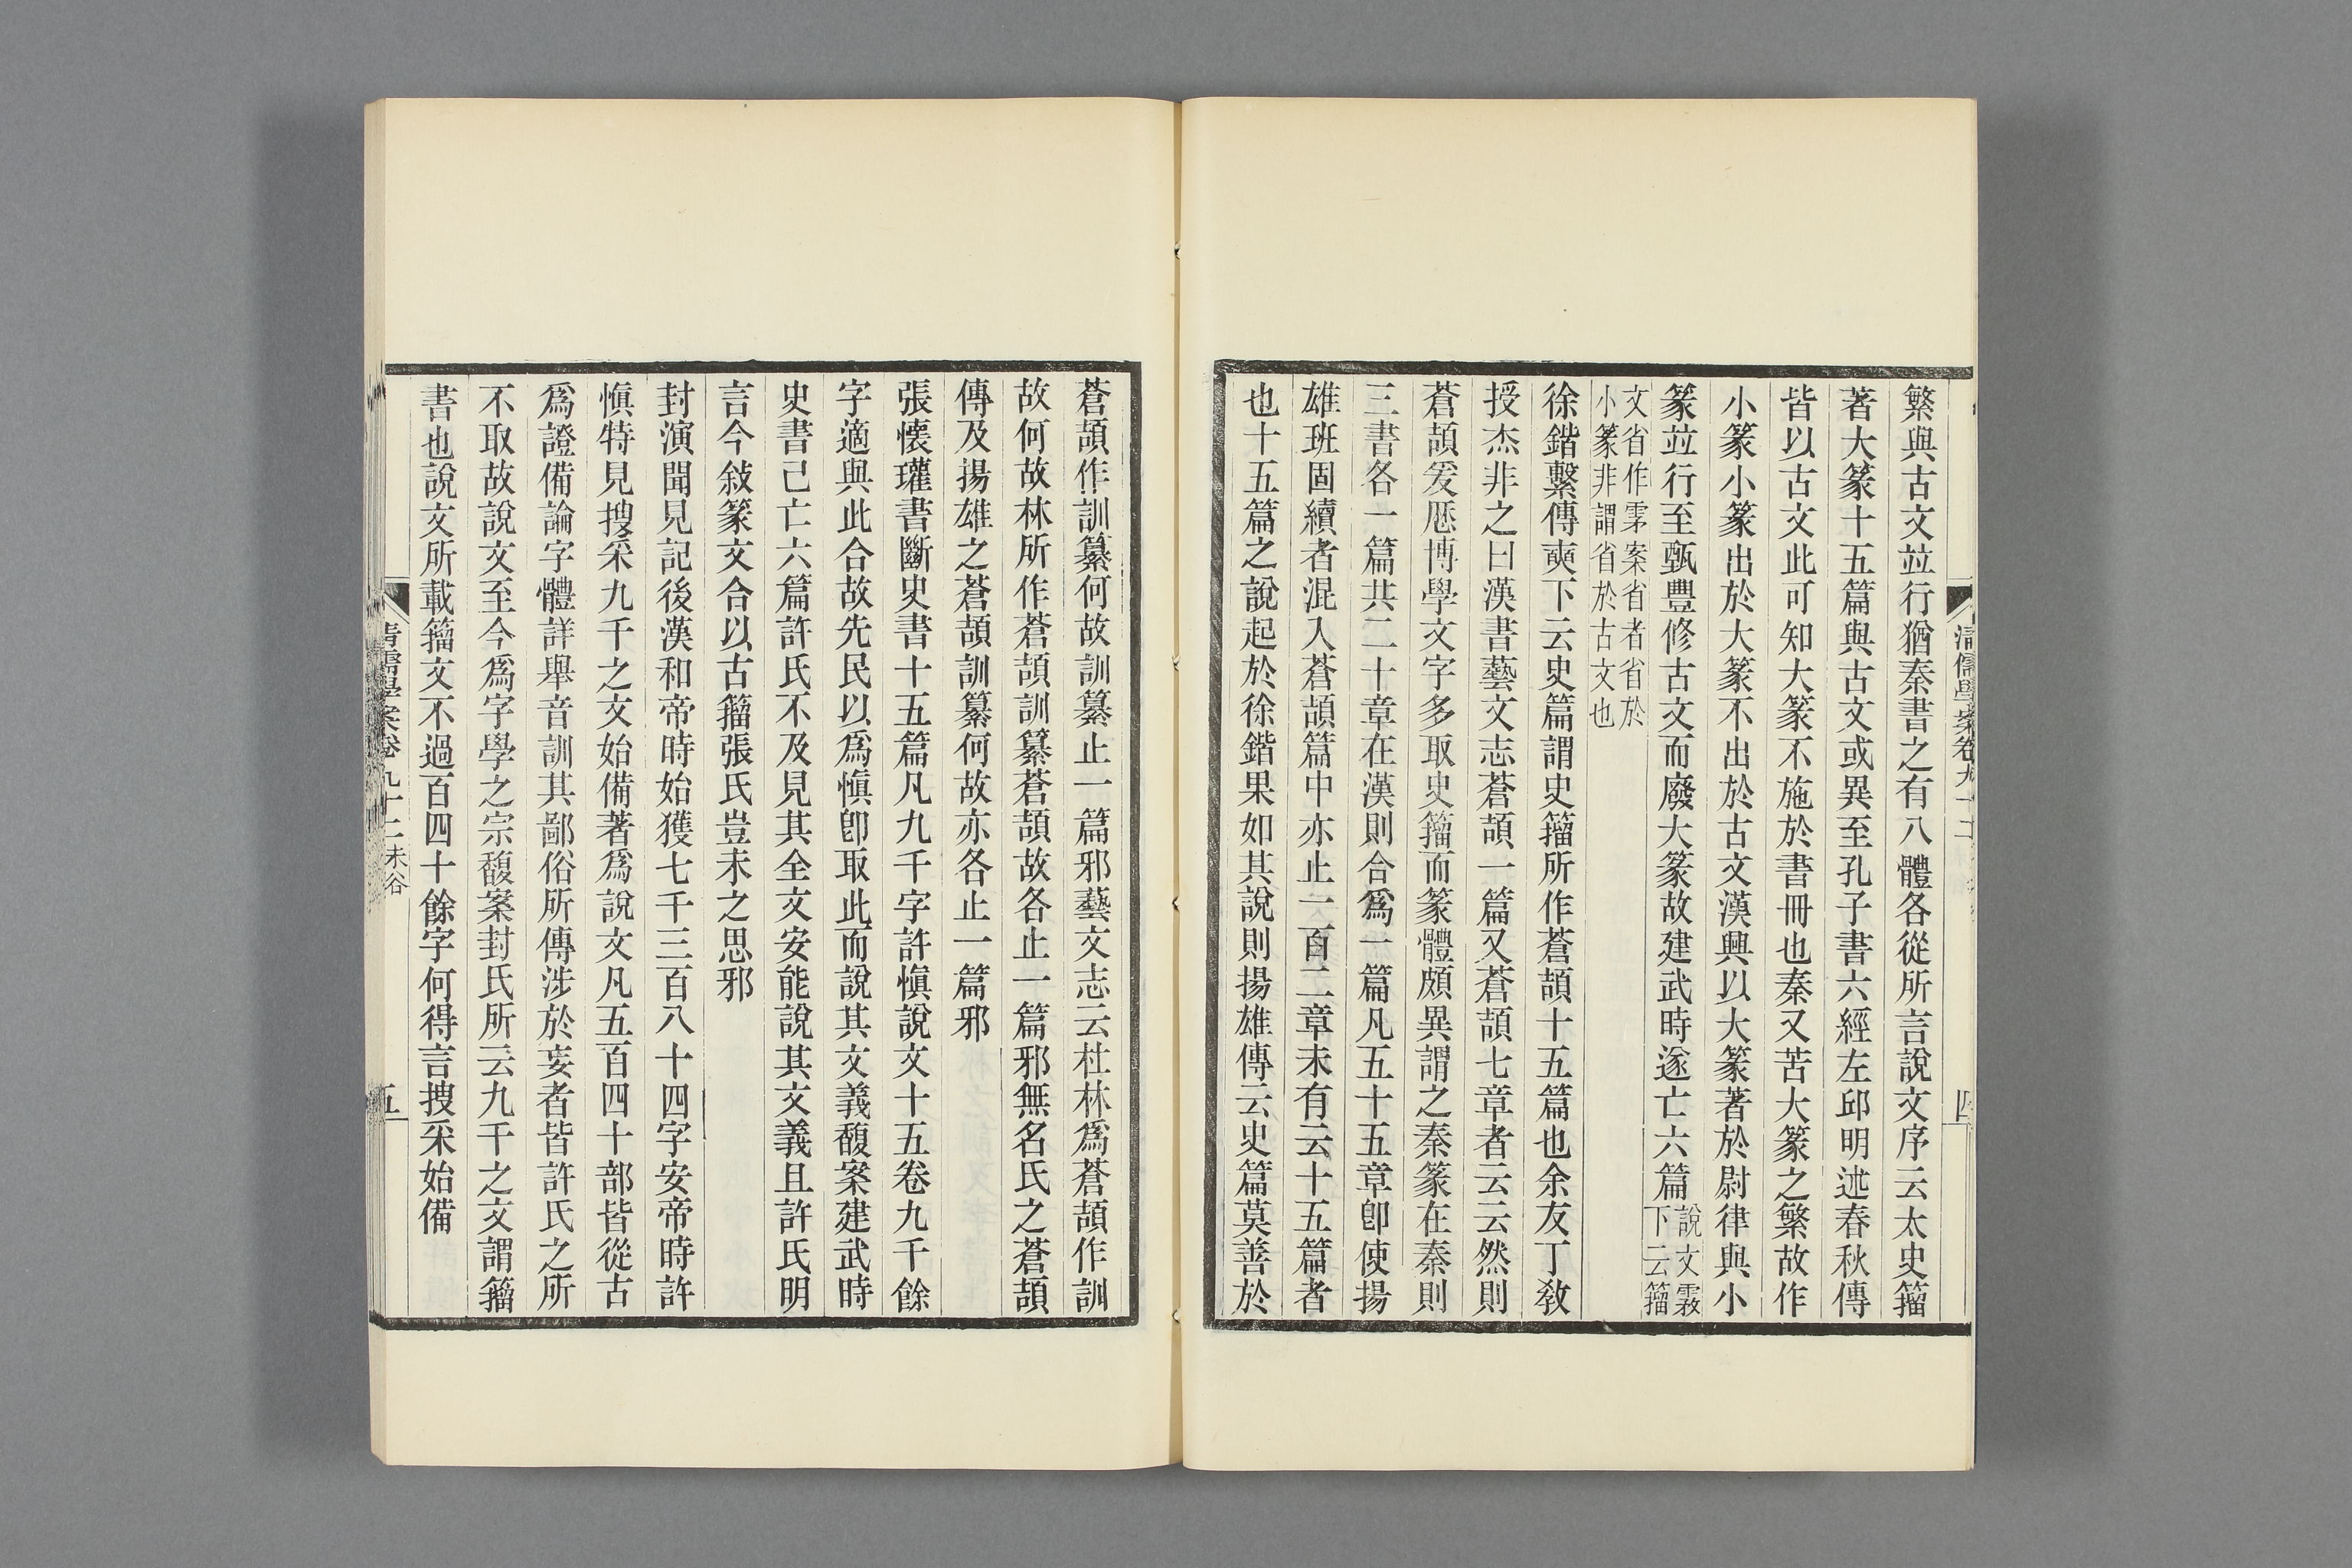 清儒學案卷九十二
四
繁與古文並行猶秦書之有八體各從所言說文序云太史籀
著大篆十五篇與古文或異至孔子書六經左邱明述春秋傳
皆以古文此可知大篆不施於書冊也秦又苦大篆之繁故作
小篆小篆出於大篆不出於古文漢興以大篆著於尉律與小
篆並行至甄豐修古文而廢大篆故建武時遂亡六篇說文䨮
下云籀
文省作䨮案省者省於
小篆非謂省於古文也
徐鍇繫傳奭下云史篇謂史籀所作蒼頡十五篇也余友丁敎
授杰非之曰漢書藝文志蒼頡一篇又蒼頡七章者云云然則
蒼頡爰歷博學文字多取史籀而篆體頗異謂之秦篆在秦則
三書各一篇共二十章在漢則合爲一篇凡五十五章卽使揚
雄班固續者混入蒼頡篇中亦止一百二章未有云十五篇者
也十五篇之說起於徐鍇果如其說則揚雄傳云史篇莫善於
蒼頡作訓纂何故訓纂止一篇邪藝文志云杜林爲蒼頡作訓
故何故林所作蒼頡訓纂蒼頡故各止一篇邪無名氏之蒼頡
傳及揚雄之蒼頡訓纂何故亦各止一篇邪
張懷瓘書斷史書十五篇凡九千字許愼說文十五卷九千餘
字適與此合故先民以爲愼卽取此而說其文義馥案建武時
史書已亡六篇許氏不及見其全文安能說其文義且許氏明
言今敍篆文合以古籀張氏豈未之思邪
封演聞見記後漢和帝時始獲七千三百八十四字安帝時許
愼特見搜采九千之文始備著爲說文凡五百四十部皆從古
爲證備論字體詳舉音訓其鄙俗所傳涉於妄者皆許氏之所
不取故說文至今爲字學之宗馥案封氏所云九千之文謂籀
書也說文所載籀文不過百四十餘字何得言搜采始備
清儒學案卷九十二 未谷
五